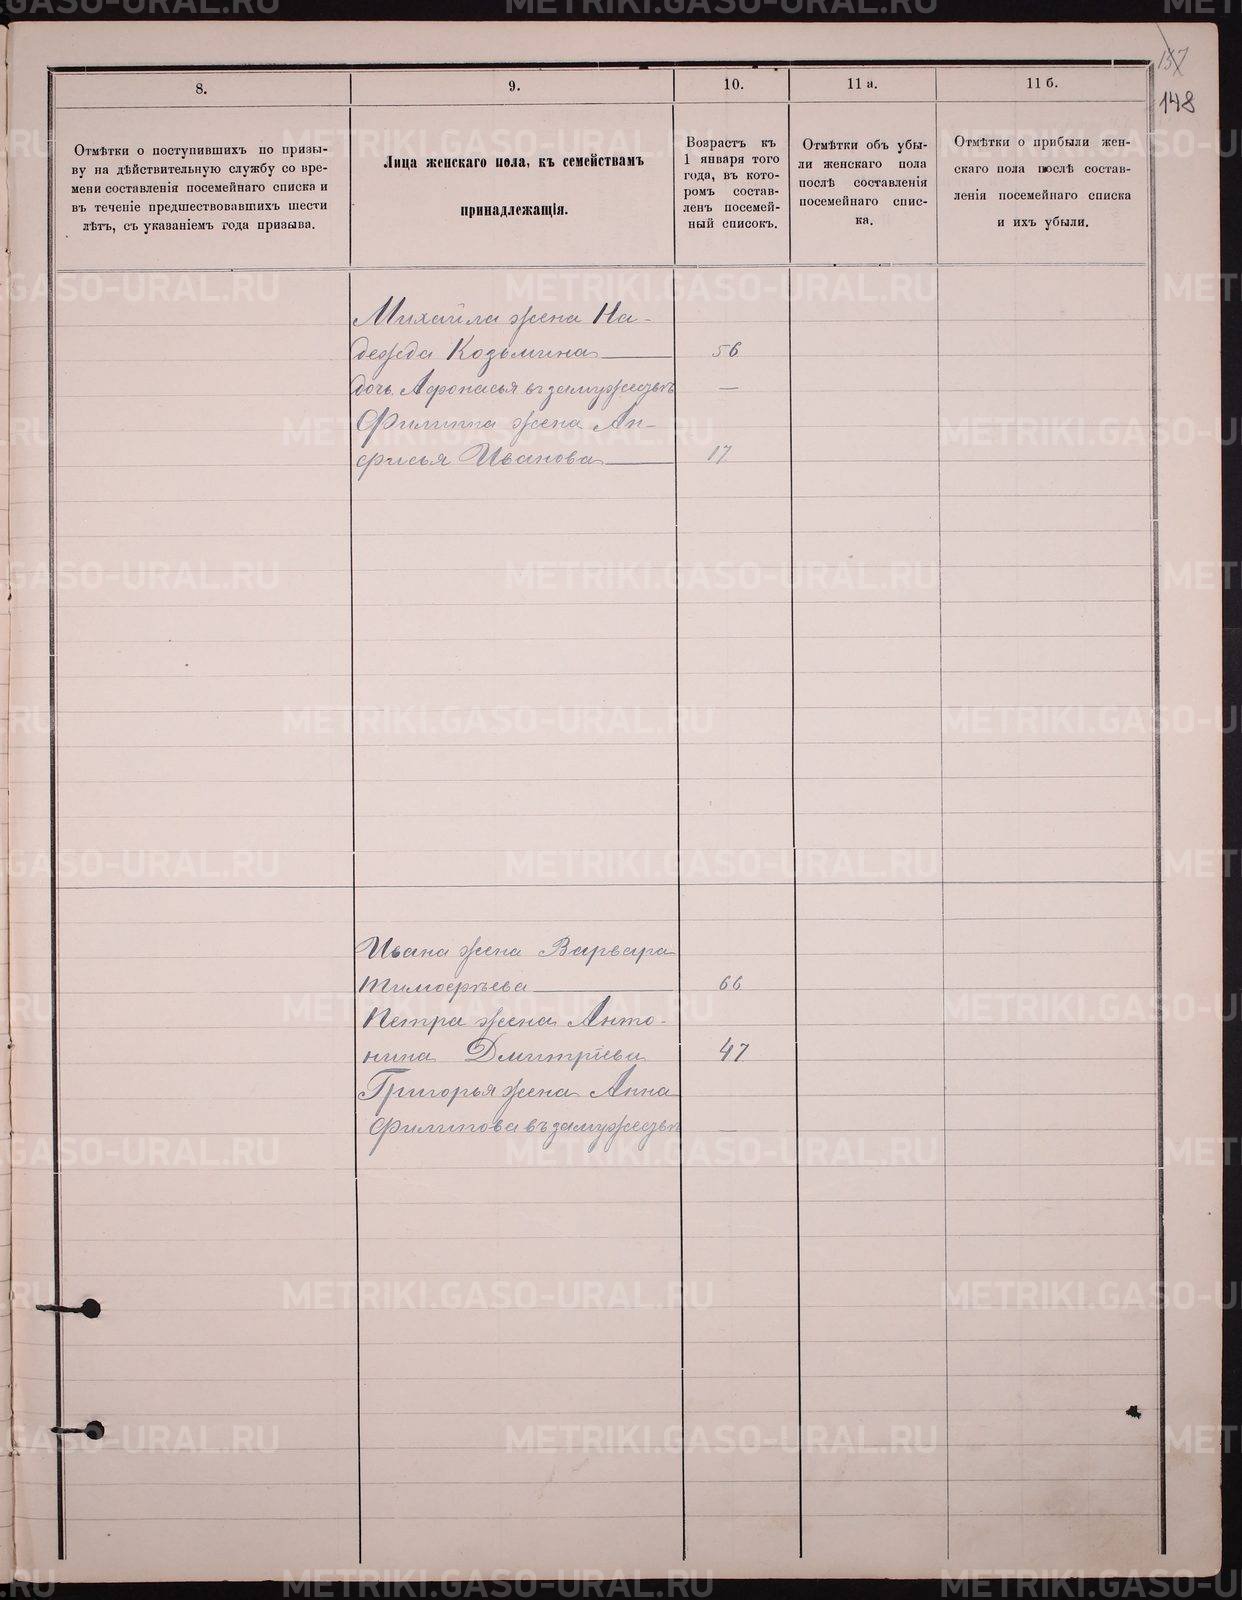 137
148
8.
9.
10.
11 а.
11 б.
Отмѣтки о поступившихъ по призы-
ву на дѣйствительную службу со вре-
мени составленія посемейнаго списка и
въ теченіе предшествовавшихъ шести
лѣтъ, съ указаніемъ года призыва.
Лица женскаго пола, къ семействамъ
принадлежащія.
Возрастъ къ
1 января того
года, въ кото-
ромъ состав-
ленъ посемей-
ный списокъ.
Отмѣтки объ убы-
ли женскаго пола
послѣ составленія
посемейнаго спис-
ка.
Отмѣтки о прибыли жен-
скаго пола послѣ состав-
ленія посемейнаго списка
и ихъ убыли.
Михайла жена На-
дежда Козьмина 56
дочь Афонасья въ замужествѣ —
Филипа жена Ан-
фисья Иванова 17
Ивана жена Варвара
Тимофѣева 66
Петра жена Анто-
нина Дмитріева 47
Григорья жена Анна
Филипова въ замужествѣ —
METRIKI.GASO-URAL.RU